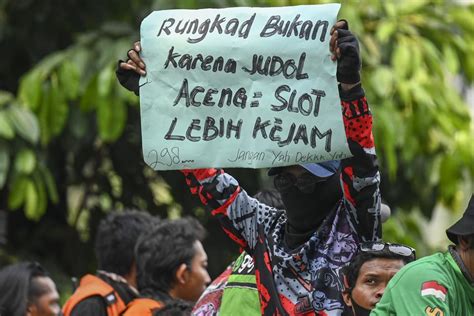 RUNGKAD BUKAN
KARENA JUDOL
ACENG = SLOT
LEBIH KEJAM
298...
Jangan Yah Dekkk